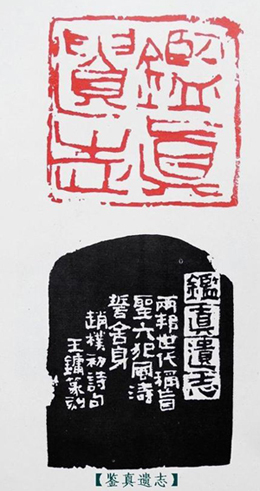 鑑真
遺志
鑑真遺志
兩邦世代稱盲
聖六犯風濤
誓舍身
趙樸初詩句
王鏞篆刻
【鉴真遺志】